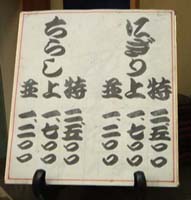 にぎり
特 二、五〇〇
上 一、七〇〇
並 一、二〇〇
ちらし
特 二、五〇〇
上 一、七〇〇
並 一、二〇〇